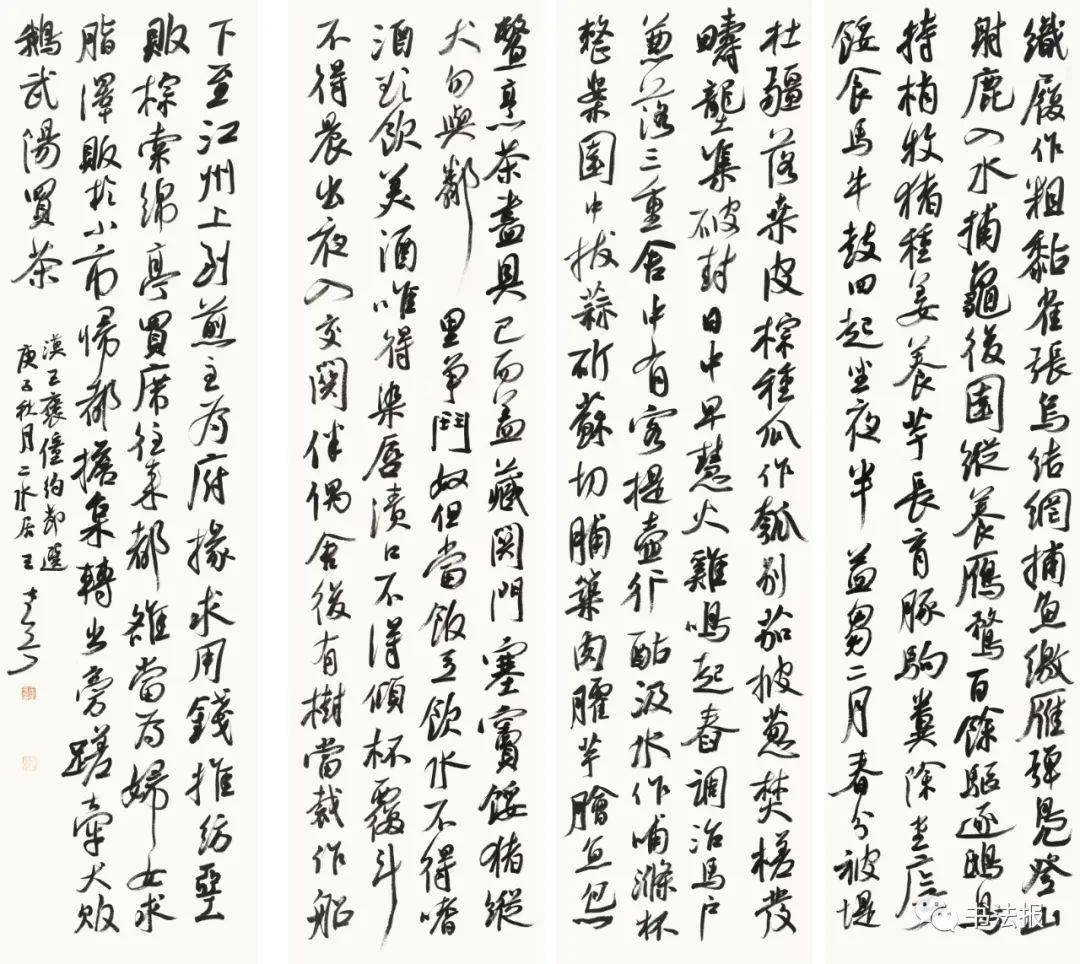 織履作粗黏雀張烏結網捕魚繳雁彈鳧登山
射鹿入水捕龜後園縱養雁鶩百餘驅逐鴟鳥
持梢牧猪種姜養芋長育豚駒糞除堂廡
餧食馬牛鼓四起坐夜半益芻二月春分被堤
杜疆落桑皮棕種瓜作瓠别茄披葱焚槎發
疇壟集破封日中早慧火雞鳴起舂調治馬户
兼落三重舍中有客提壺行酤汲水作哺滌杯
整案園中拔蒜斫蘇切脯築肉臛芋膾魚炰
鱉烹茶盡具已而盖藏関門塞竇餧猪縱
犬勿與鄰里爭鬥奴但當飯豆飲水不得嗜
酒欲飲美酒唯得染唇漬口不得傾杯覆斗
不得晨出夜入交関伴偶舍後有樹當裁作船
下至江州上到煎主为府掾求用錢推紡堊
敗棕索綿亭買席往来都雒當为婦女求
脂澤販於小市歸都擔枲轉出旁蹉牽犬販
鵝武陽買茶
漢王褒僮約節選
庚子秋月二水居王
书法报